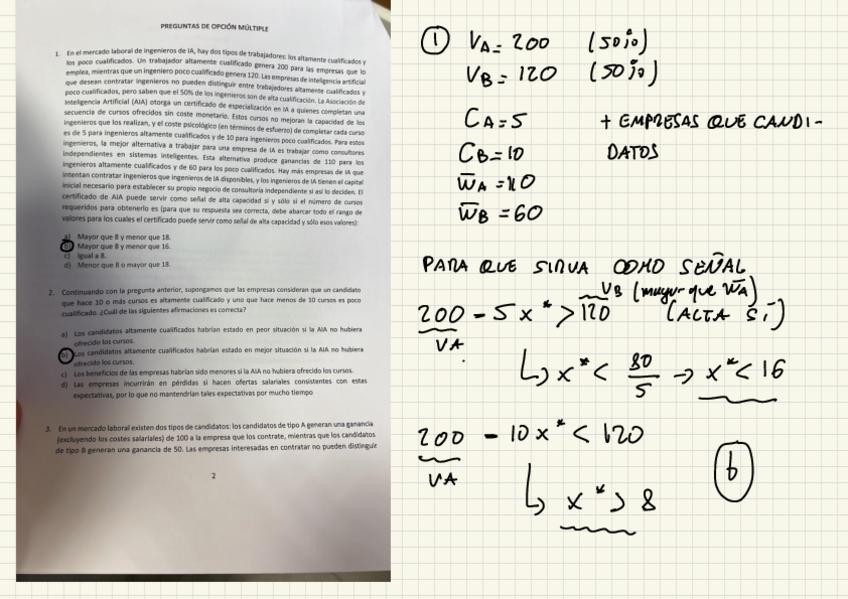 PREGUNTAS DE OPCIÓN MÚLTIPLE
1. En el mercado laboral de ingenieros de IA, hay dos tipos de trabajadores: los altamente cualificados y
los poco cualificados. Un trabajador altamente cualificado genera 200 para las empresas que lo
emplea, mientras que un ingeniero poco cualificado genera 120. Las empresas de inteligencia artificial
que desean contratar ingenieros no pueden distinguir entre trabajadores altamente cualificados y
poco cualificados, pero saben que el 50% de los ingenieros son de alta cualificación. La Asociación de
Inteligencia Artificial (AIA) otorga un certificado de especialización en IA a quienes completan una
secuencia de cursos ofrecidos sin coste monetario. Estos cursos no mejoran la capacidad de los
ingenieros que los realizan, y el coste psicológico (en términos de esfuerzo) de completar cada curso
es de 5 para ingenieros altamente cualificados y de 10 para ingenieros poco cualificados. Para estos
ingenieros, la mejor alternativa a trabajar para una empresa de IA es trabajar como consultores
independientes en sistemas inteligentes. Esta alternativa produce ganancias de 110 para los
ingenieros altamente cualificados y de 60 para los poco cualificados. Hay más empresas de IA que
intentan contratar ingenieros que ingenieros de IA disponibles, y los ingenieros de IA tienen el capital
inicial necesario para establecer su propio negocio de consultoría independiente si así lo deciden. El
certificado de AIA puede servir como señal de alta capacidad si y sólo si el número de cursos
requeridos para obtenerlo es (para que su respuesta sea correcta, debe abarcar todo el rango de
valores para los cuales el certificado puede servir como señal de alta capacidad y sólo esos valores):
a) Mayor que 8 y menor que 18.
b) Mayor que 8 y menor que 16.
c) Igual a 8.
d) Menor que 8 o mayor que 18.
2. Continuando con la pregunta anterior, supongamos que las empresas consideran que un candidato
que hace 10 o más cursos es altamente cualificado y uno que hace menos de 10 cursos es poco
cualificado. ¿Cuál de las siguientes afirmaciones es correcta?
a) Los candidatos altamente cualificados habrían estado en peor situación si la AIA no hubiera
ofrecido los cursos.
b) Los candidatos altamente cualificados habrían estado en mejor situación si la AIA no hubiera
ofrecido los cursos.
c) Los beneficios de las empresas habrían sido menores si la AIA no hubiera ofrecido los cursos.
d) Las empresas incurrirán en pérdidas si hacen ofertas salariales consistentes con estas
expectativas, por lo que no mantendrían tales expectativas por mucho tiempo
3. En un mercado laboral existen dos tipos de candidatos: los candidatos de tipo A generan una ganancia
(excluyendo los costes salariales) de 100 a la empresa que los contrate, mientras que los candidatos
de tipo B generan una ganancia de 50. Las empresas interesadas en contratar no pueden distinguir
2
① VA = 200 (50%)
VB = 120 (50%)
CA = 5 + EMPRESAS QUE CANDI-
CB = 10 DATOS
W̅A = 110
W̅B = 60
PARA QUE SIRVA COMO SEÑAL
VB (mayor que W̅A)
200 - 5x* > 120 (ALTA SÍ)
VA
↳ x* < 80/5 → x* < 16
200 - 10x* < 120
VA
↳ x* > 8
b